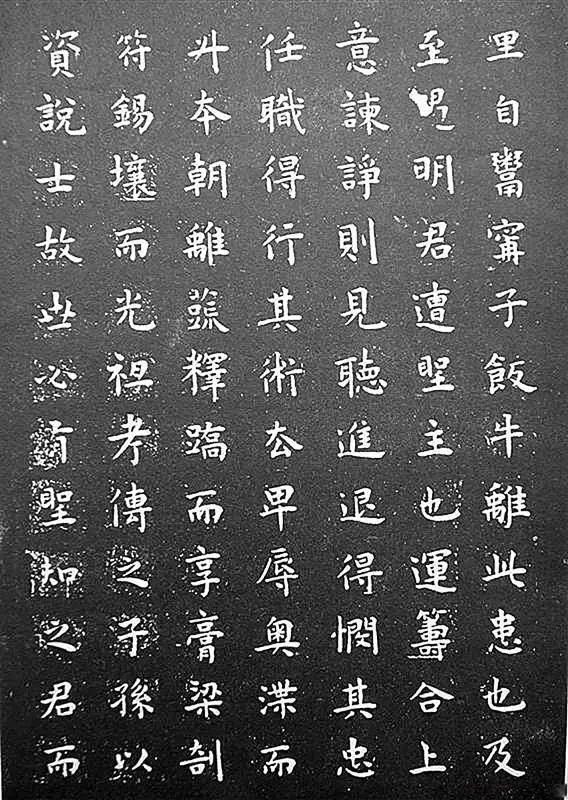 里自鬻甯子飯牛離此患也及
至遇明君遭聖主也運籌合上
意諫諍則見聽進退得憫其忠
任職得行其術去卑辱奧渫而
升本朝離蔬釋蹻而享膏梁剖
符錫壤而光祖考傳之子孫以
資說士故世必有聖知之君而